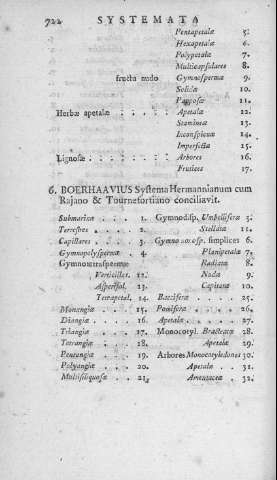 722 SYSTEMATA
Pentapetalæ 5.
Hexapetalæ 6.
Polypetalæ 7.
Multicapsulares 8.
fructu nudo Gymnospermæ 9.
Solidæ 10.
Papposæ 11.
Herbæ apetalæ . . . . Apetalæ 12.
Stamineæ 13.
Inconspicuæ 14.
Imperfectæ 15.
Lignosæ . . . . Arbores 16.
Frutices 17.
6. BOERHAAVIUS Systema Hermannianum cum
Rajano & Tournefortiano conciliavit.
Submarinæ . . . 1. Gymnodisp. Umbelliferæ 3.
Terrestres . . . 2. Stellatæ 11.
Capillares . . . 3. Gymno simplices 6.
Gymnopolyspermæ . 4 Planipetalæ 7.
Gymnotetraspermæ Radiatæ 8.
Verticillat. 12. Nudæ 9.
Asperifol. 13. Capitatæ 10.
Tetrapetal. 14. Bacciferæ . . . 25.
Monangiæ . . . 15. Pomiferæ . . . 26.
Diangiæ . . . 16. Apetalæ . . . 27.
Triangiæ . . . 17. Monocotyl. Bracteatæ 28.
Tetrangiæ . . . 18. Apetalæ 29.
Pentangiæ . . . 19. Arbores Monocotyledones 30.
Polyangiæ . . . 20. Apetalæ . 31.
Multisiliquosæ . . 21. Amentaceæ . 32.